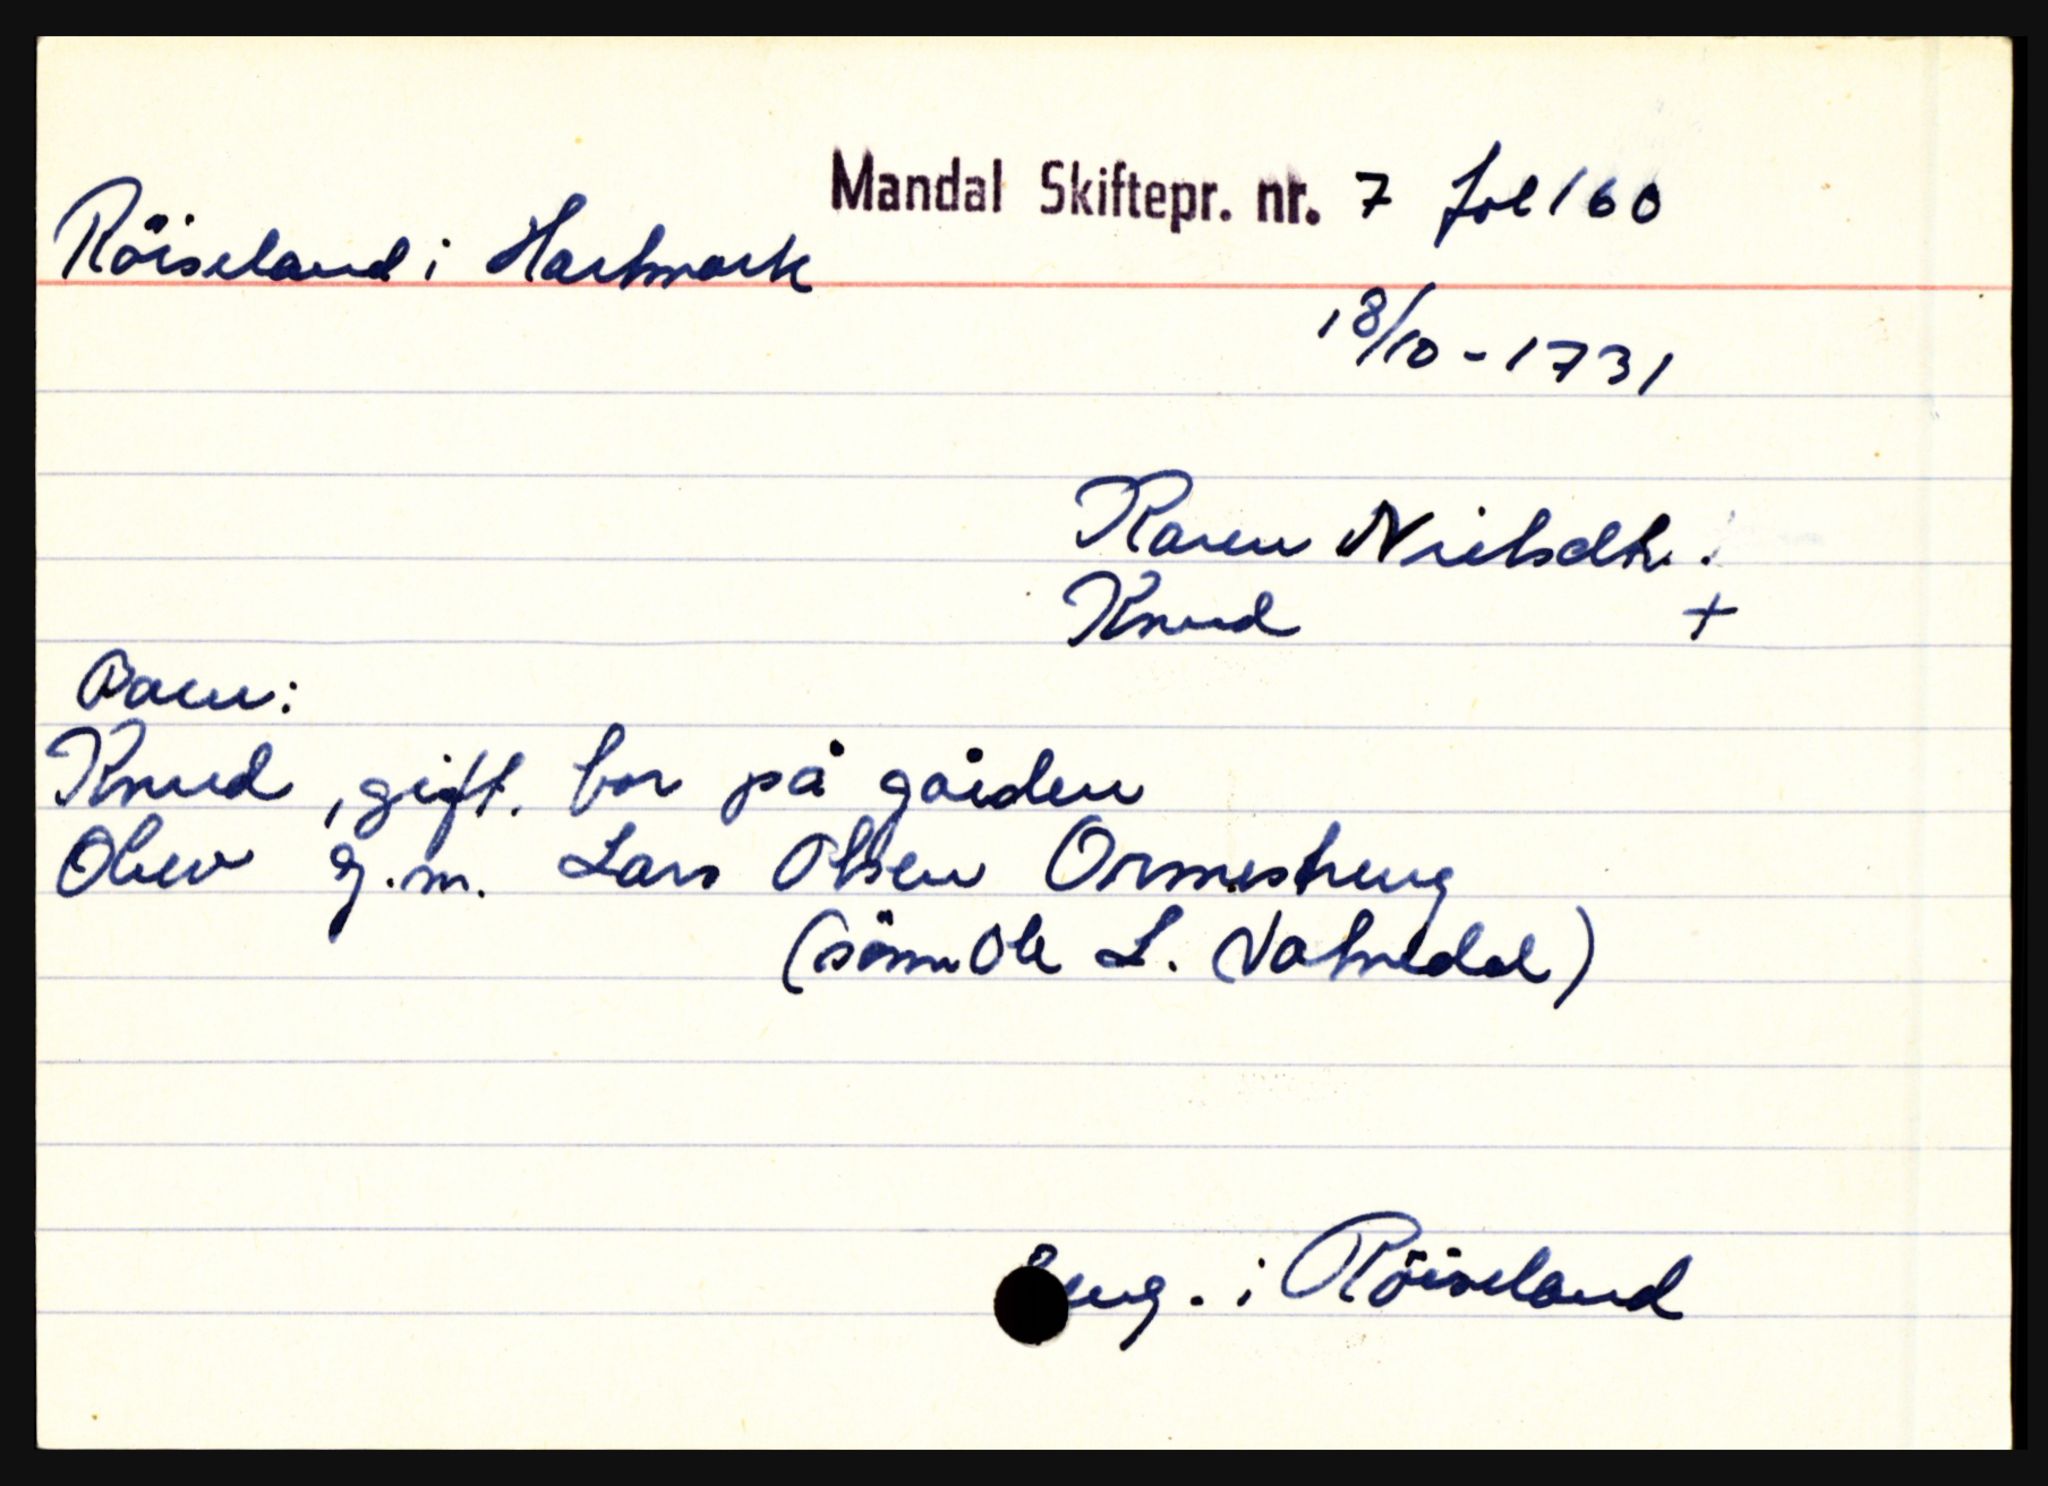 Mandal Skiftepr. nr. 7 fol 160
Röiseland i Hartmark
18/10 - 1731
Karen Nielsdtr.
Knud +
Barn:
Knud, gift. bor på gården
Olev g.m. Lars Olsen Ormestreng
(sönn Ole L. Vatnedal)
Eng. i Röiseland